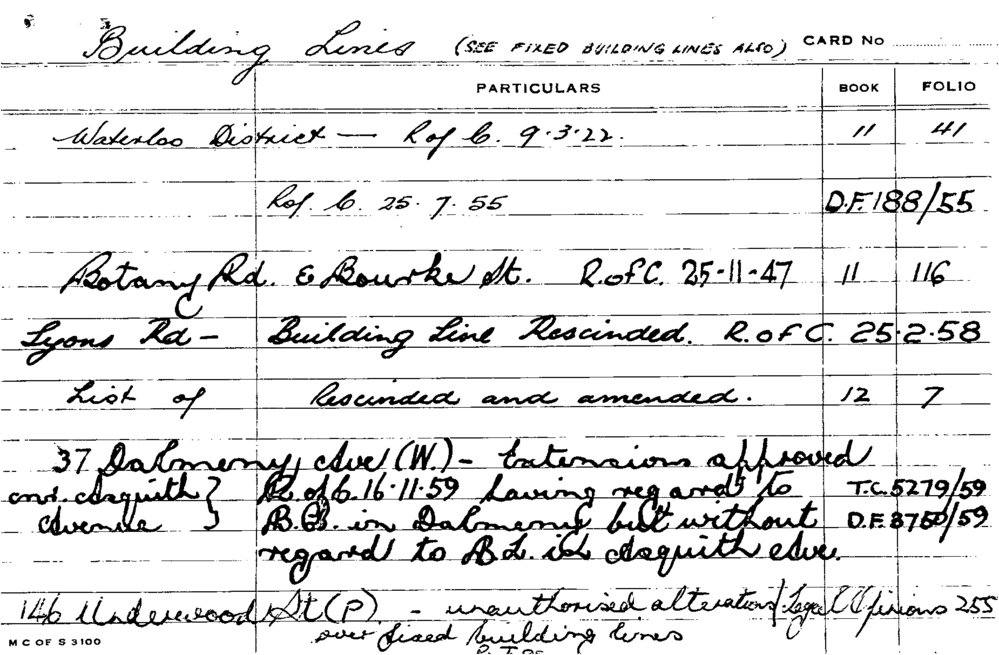 Building Lines (SEE FIXED BUILDING LINES ALSO) CARD No
PARTICULARS BOOK FOLIO
Waterloo District — R of C. 9.3.22. 11 41
R of. C. 25.7.55 D.F. 188/55
Botany Rd. & Bourke St. R. of C. 25-11-47 11 116
Lyons Rd - Building Line Rescinded. R. of C. 25.2.58
List of Rescinded and amended. 12 7
37 Dalmeny Ave (W.) - Extensions approved
cnr. Asquith } R. of C. 16.11.59 having regard to T.C. 5279/59
Avenue } B.L. in Dalmeny but without D.F. 3750/59
regard to B.L. in Asquith Ave.
146 Underwood St (P) - unauthorised alterations / Legal Opinions 255
over fixed building lines
M C OF S 3100